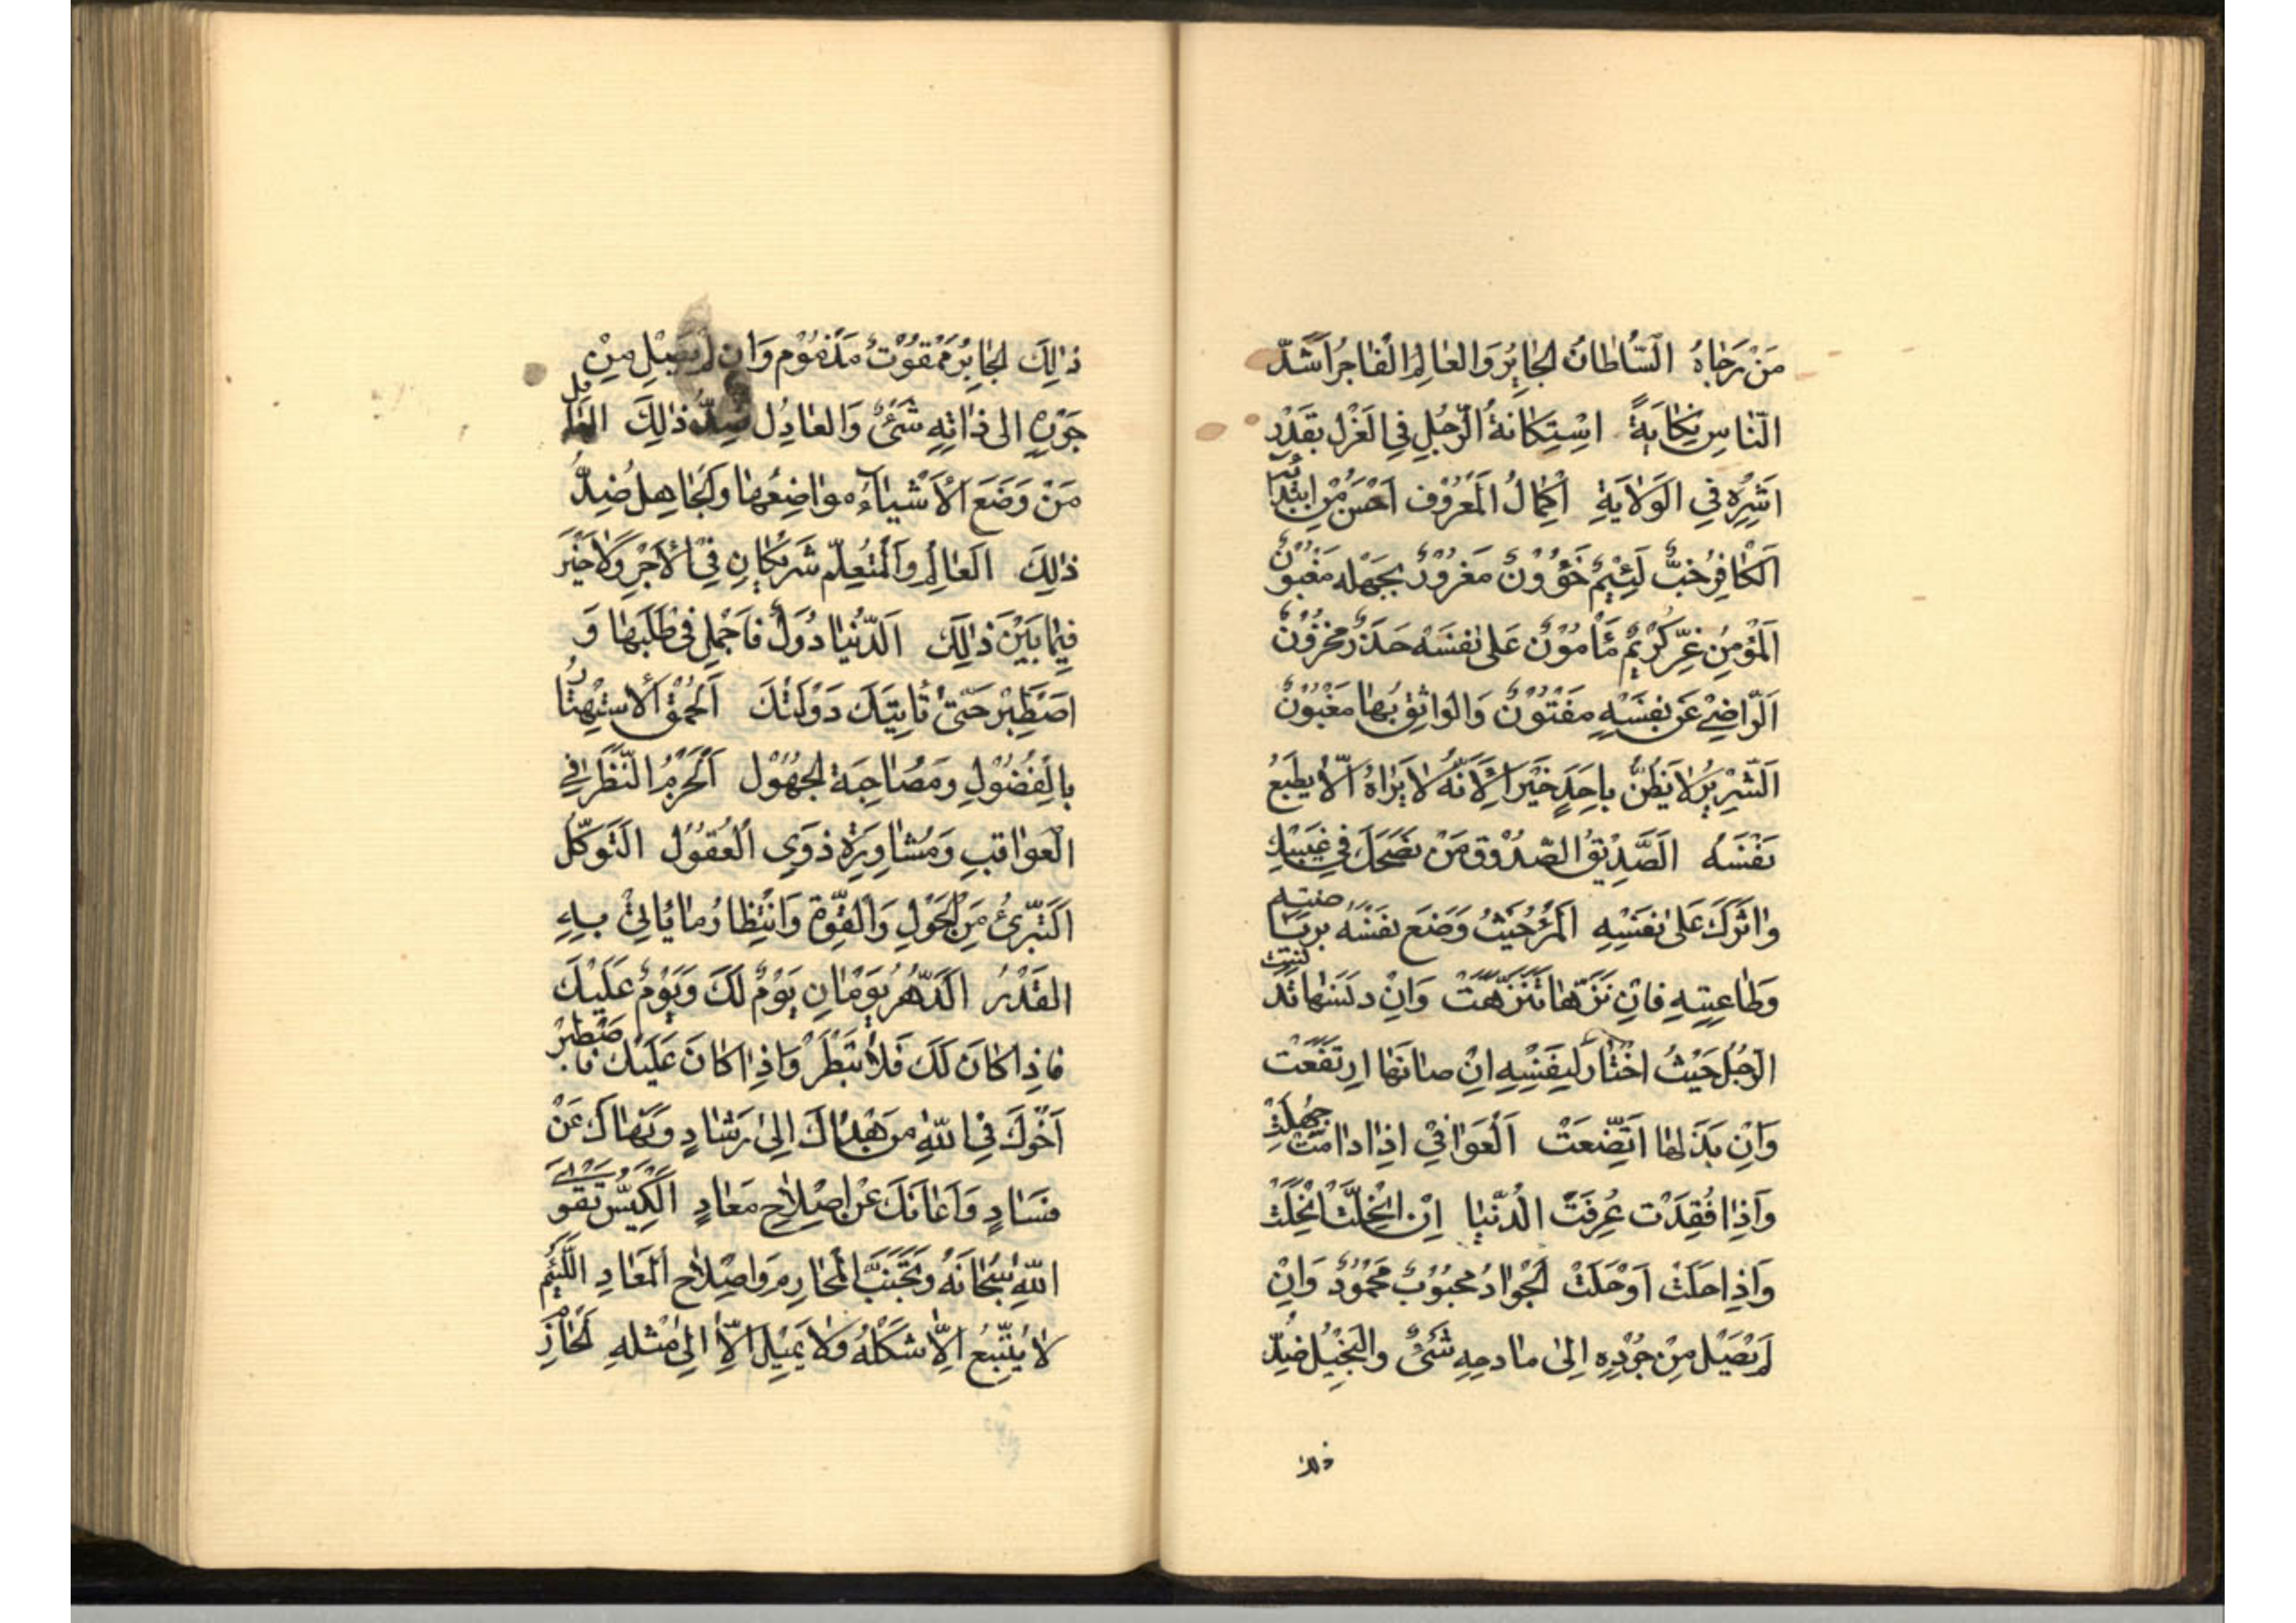 مَنْ رَجٰاهُ السُّلْطانُ الجٰايِرُ وَالعٰالِمُ الْفٰاجِرُ اَشَدُّ
النّٰاسِ نِكٰايَةً اسْتِكٰانَةُ الرَّجُلِ فِي العَزْلِ بِقَدْرِ
اَشَرِهِ فِي الوَلاٰيَةِ اِكْمٰالُ الْمَعْرُوْفِ اَحْسَنُ مِنْ ابْتِدٰائِهِ
اَلْكٰافِرُ خَبٌّ لَئِيْمٌ خَؤُوْنٌ مَغْرُوْرٌ بِجَهْلِهِ مَغْبُوْنٌ
اَلْمُؤْمِنُ غِرٌّ كَرِيْمٌ مَأْمُوْنٌ عَلىٰ نَفْسِهِ حَذِرٌ مَحْزُوْنٌ
اَلرّٰاضِيْ عَنْ نَفْسِهِ مَفْتُوْنٌ وَالوٰاثِقُ بِهٰا مَغْبُوْنٌ
اَلشِّرِّيْرُ لاٰ يَظُنُّ بِاَحَدٍ خَيْرًا لِاَنَّهُ لاٰ يَرٰاهُ اِلّاٰ بِطَبْعِ
نَفْسِهِ الصَّدِيْقُ الصَّدُوْقُ مَنْ نَصَحَكَ فِي غَيْبِكَ
وَاٰثَرَكَ عَلىٰ نَفْسِهِ الْمَرْءُ حَيْثُ وَضَعَ نَفْسَهُ بِرِيٰاضَتِهِ
وَطٰاعَتِهِ فَاِنْ نَزَّهَهٰا تَنَزَّهَتْ وَاِنْ دَنَّسَهٰا تَدَنَّسَتْ
الرَّجُلُ حَيْثُ اخْتٰارَ لِنَفْسِهِ اِنْ صٰانَهٰا ارْتَفَعَتْ
وَاِنْ بَذَلَهٰا اتَّضَعَتْ اَلْعَوٰافِيْ اِذٰا دٰامَتْ جُهِلَتْ
وَاِذٰا فُقِدَتْ عُرِفَتْ الدُّنْيٰا اِنْ انْحَلَّتْ انْحَلَتْ
وَاِذٰا حَلَتْ اَوْحَلَتْ الجَوٰادُ مَحْبُوْبٌ مَحْمُوْدٌ وَاِنْ
لَمْ يَصِلْ مِنْ جُوْدِهِ اِلىٰ مٰادِحِهِ شَيْئٌ وَالبَخِيْلُ ضِدُّ
ذلك
ذٰلِكَ الجٰايِرُ مَمْقُوْتٌ مَذْمُوْمٌ وَاِنْ لَمْ يَصِلْ مِنْ
جَوْرِهِ اِلىٰ ذٰاتِهِ شَيْئٌ وَالعٰادِلُ ضِدُّ ذٰلِكَ العٰاقِلُ
مَنْ وَضَعَ الْاَشْيٰاءَ مَوٰاضِعَهٰا وَالجٰاهِلُ ضِدُّ
ذٰلِكَ العٰالِمُ وَالْمُتَعَلِّمُ شَرِيْكٰانِ فِيْ الْاَجْرِ وَلاٰ خَيْرَ
فِيْمٰا بَيْنَ ذٰلِكَ اَلدُّنْيٰا دُوَلٌ فَاَجْمِلْ فِي طَلَبِهٰا وَ
اصْطَبِرْ حَتّىٰ تَأْتِيَكَ دَوْلَتُكَ اَلحُمْقُ الْاِسْتِهْتٰارُ
بِالْفُضُوْلِ وَمُصٰاحَبَةُ الجَهُوْلِ اَلْحَزْمُ النَّظَرُ فِي
الْعَوٰاقِبِ وَمُشٰاوَرَةُ ذَوِي الْعُقُوْلِ التَّوَكُّلُ
اَلتَّبَرِّيُ مِنَ الْحَوْلِ وَالْقُوَّةِ وَانْتِظٰارُ مٰا يَأْتِيْ بِهِ
القَدَرُ الدَّهْرُ يَوْمٰانِ يَوْمٌ لَكَ وَيَوْمٌ عَلَيْكَ
فَاِذٰا كٰانَ لَكَ فَلاٰ تَبْطَرْ وَاِذٰا كٰانَ عَلَيْكَ فَاصْطَبِرْ
اَخُوْكَ فِي اللّٰهِ مَنْ هَدٰاكَ اِلىٰ رَشٰادٍ وَنَهٰاكَ عَنْ
فَسٰادٍ وَاَعٰانَكَ عَنْ اِصْلاٰحِ مَعٰادٍ الْكَيِّسُ تَقْوَى
اللّٰهِ سُبْحٰانَهُ وَتَجَنُّبُ الْمَحٰارِمِ وَاِصْلاٰحُ الْمَعٰادِ اللَّئِيْمُ
لاٰ يَتَّبِعُ اِلّاٰ شَكْلَهُ وَلاٰ يَمِيْلُ اِلّاٰ اِلىٰ مِثْلِهِ الحٰازِمُ